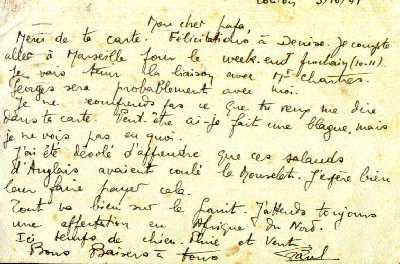 Toulon 5/10/41
Mon cher papa,
Merci de ta carte. Félicitations à Denise. Je compte
aller à Marseille pour le week-end prochain (10-11).
Je vais tenir la liaison avec Mr Chartres.
Georges sera probablement avec moi.
Je ne comprends pas ce que tu veux me dire
dans ta carte. Peut être ai-je fait une blague, mais
je ne vois pas en quoi.
J'ai été désolé d'apprendre que ces salauds
d'Anglais avaient coulé le Monselet. J'espère bien
leur faire payer cela.
Tout va bien sur le . J'attends toujours
une affectation en Afrique du Nord.
Ici temps de chien. Pluie et Vent.
Bons Baisers à tous
Paul